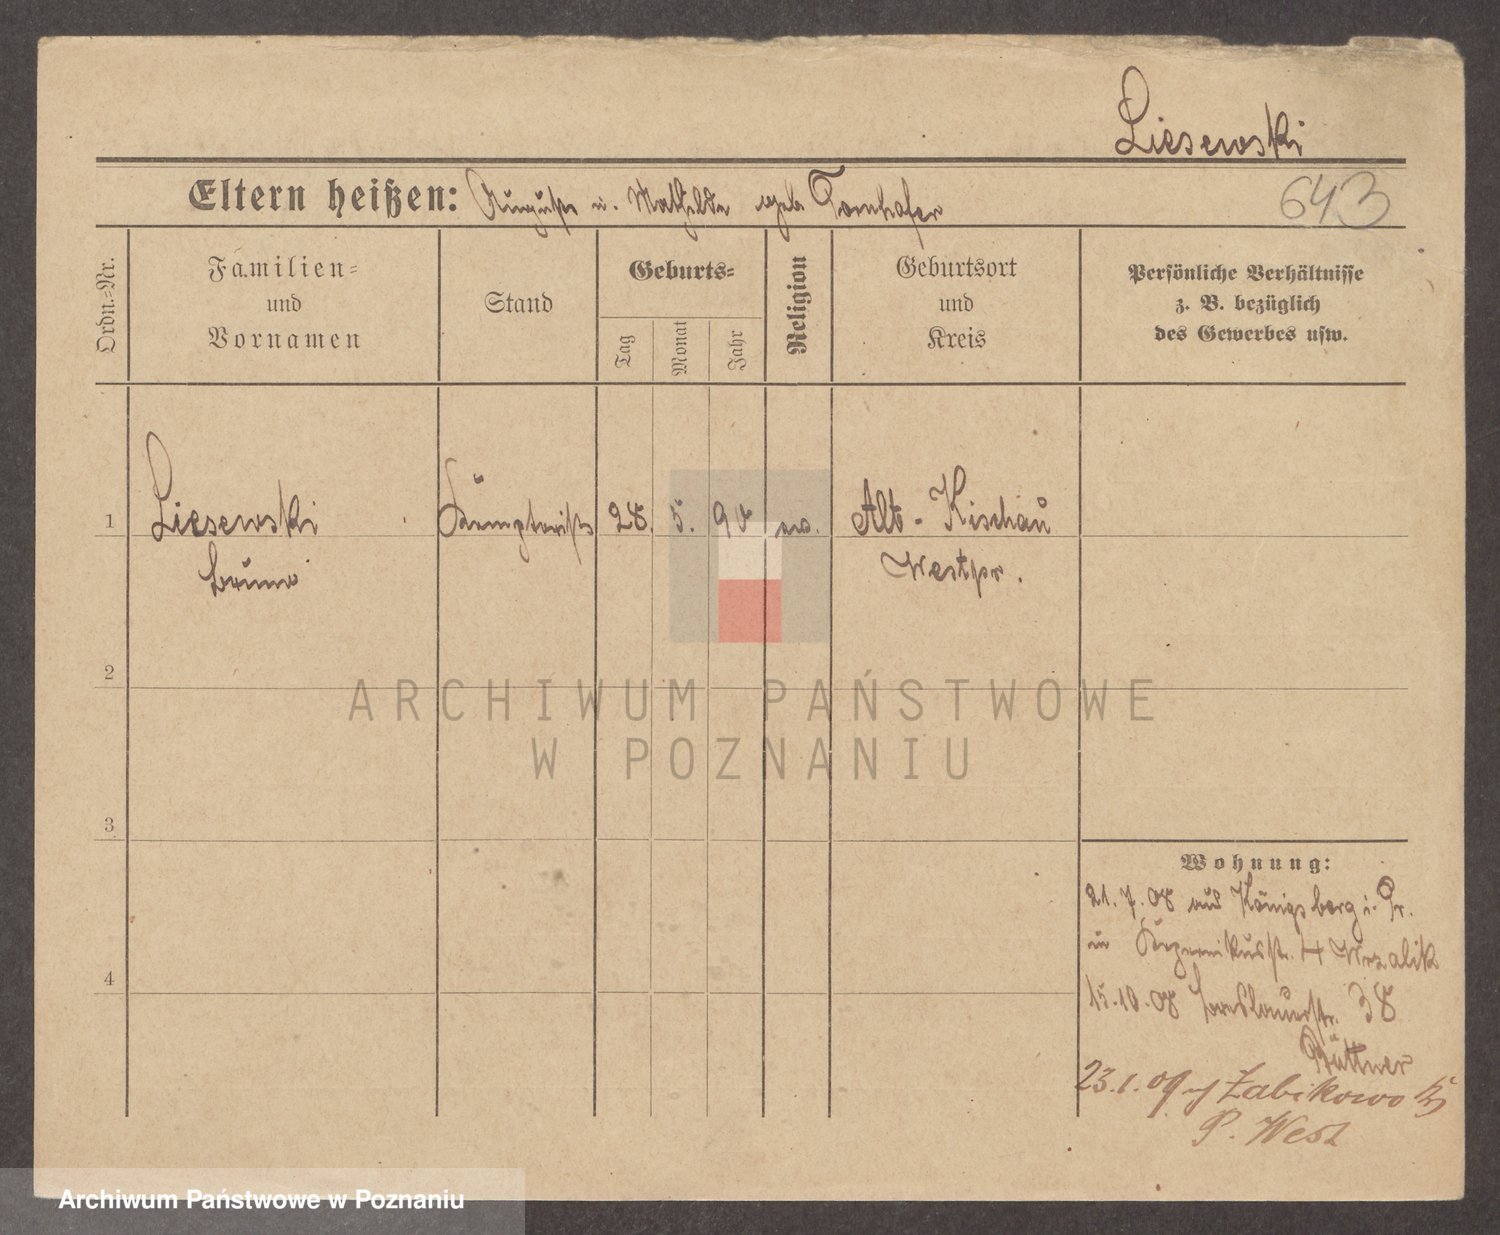 Liesewski
Eltern heißen: Auguste u. Mathilde geb Tornhofer
643
Ordn.=Nr.
Familien=
und
Vornamen
Stand
Geburts=
Tag
Monat
Jahr
Religion
Geburtsort
und
Kreis
Persönliche Verhältnisse
z. B. bezüglich
des Gewerbes usw.
1
Liesewski
Bruno
28.
5.
90
ev.
Alt-Kischau
Westpr.
2
3
4
Wohnung:
21.7.08 aus Königsberg i. Pr.
in Kopernikusstr. 4
15.10.08 Breslauerstr. 38
Büttner
23.1.09 Zabikowo
P. West
ARCHIWUM PAŃSTWOWE
W POZNANIU
Archiwum Państwowe w Poznaniu